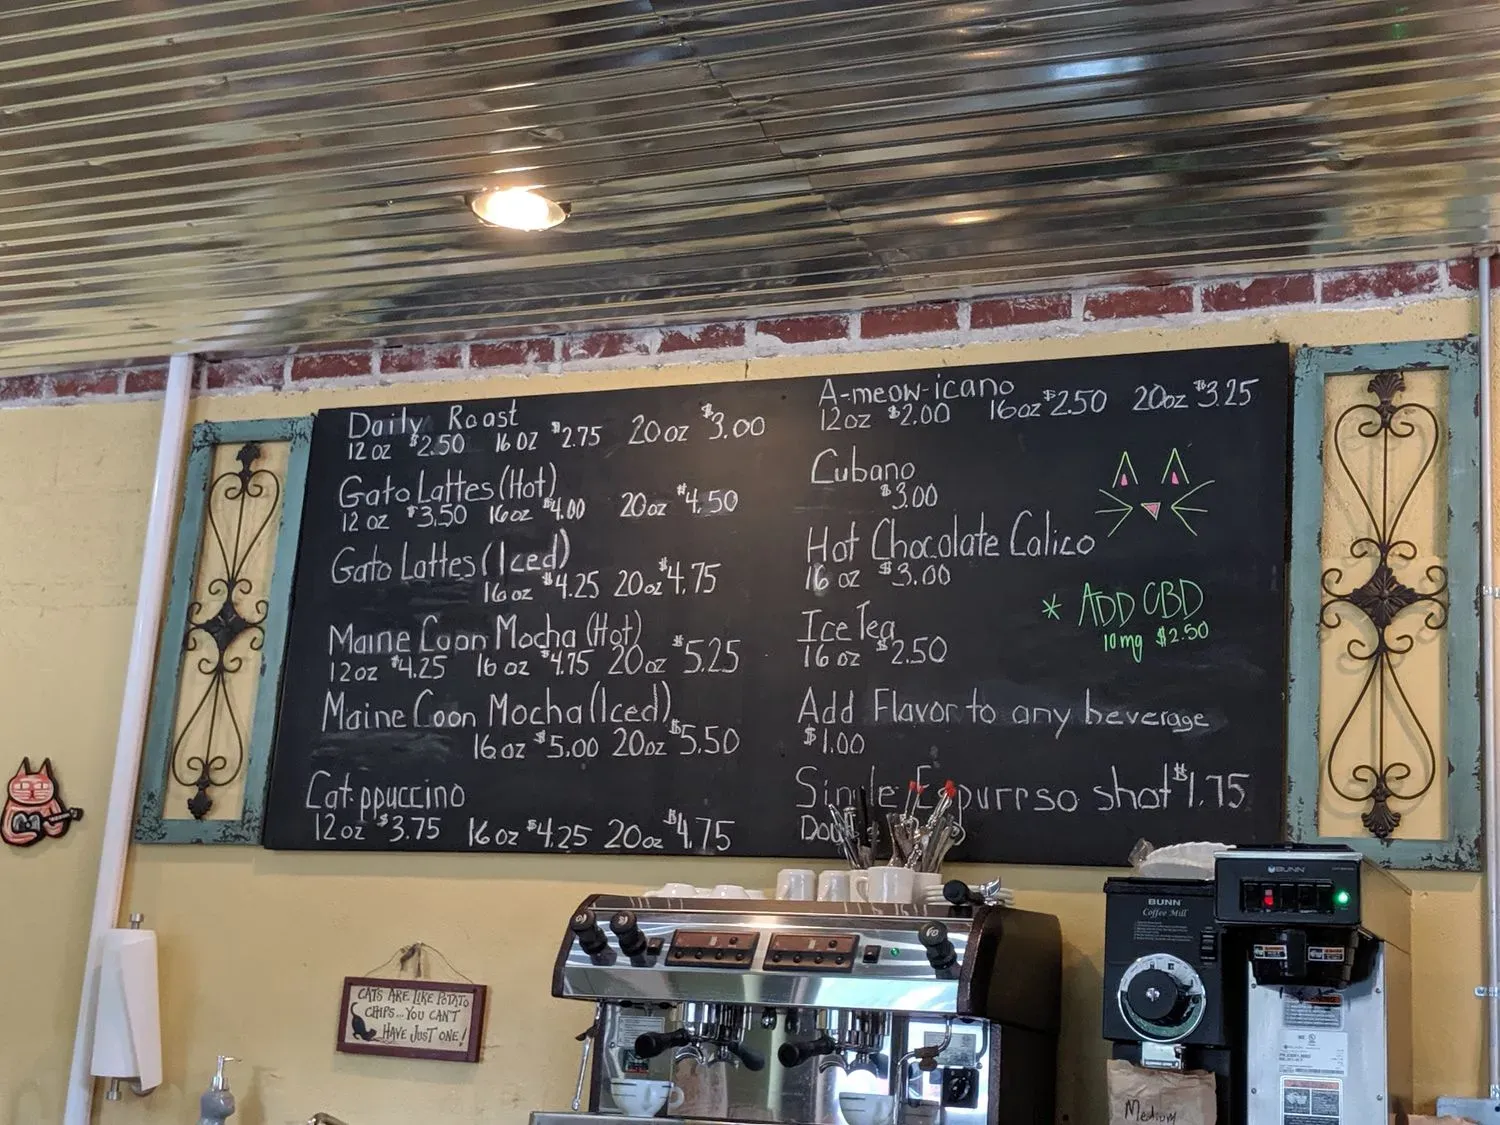 Daily Roast
12 oz $2.50 16 oz $2.75 20 oz $3.00
Gato Lattes (Hot)
12 oz $3.50 16 oz $4.00 20 oz $4.50
Gato Lattes (Iced)
16 oz $4.25 20 oz $4.75
Maine Coon Mocha (Hot)
12 oz $4.25 16 oz $4.75 20 oz $5.25
Maine Coon Mocha (Iced)
16 oz $5.00 20 oz $5.50
Cat-ppuccino
12 oz $3.75 16 oz $4.25 20 oz $4.75
A-meow-icano
12 oz $2.00 16 oz $2.50 20 oz $3.25
Cubano
$3.00
Hot Chocolate Calico
16 oz $3.00
Ice Tea
16 oz $2.50
Add Flavor to any beverage
$1.00
Single Espurrso shot $1.75
* ADD CBD
10mg $2.50
CATS ARE LIKE POTATO
CHIPS...YOU CAN'T
HAVE JUST ONE!
BUNN
Coffee Mill
BUNN
Medium